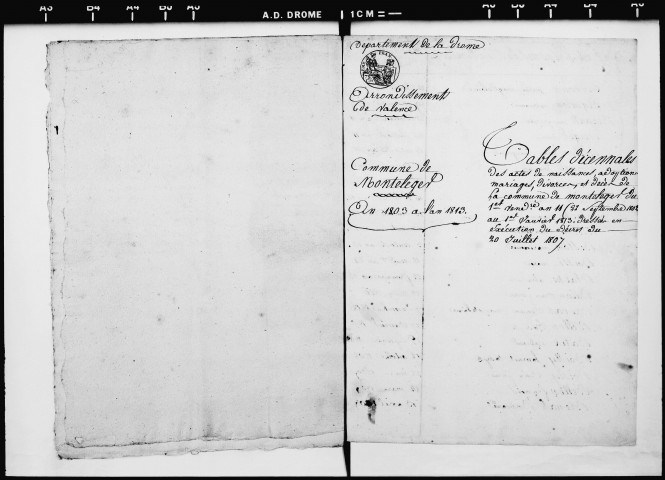 A3 B4 A4 B5 A5
A.D. DROME
1CM
A5 B5 A4 B4 A3
Département de la Drome
Arrondissement
de Valence
Commune de
Monteleger
Du 1803 a l'an 1813.
Tables décennales
des actes de naissances, adoption
mariages, divorces, et décès de
la commune de monteleger du
1er vendre an 11 (23 septembre 1802
au 1er Janvier 1813. Dressée en
exécution du Décret du
20 Juillet 1807.